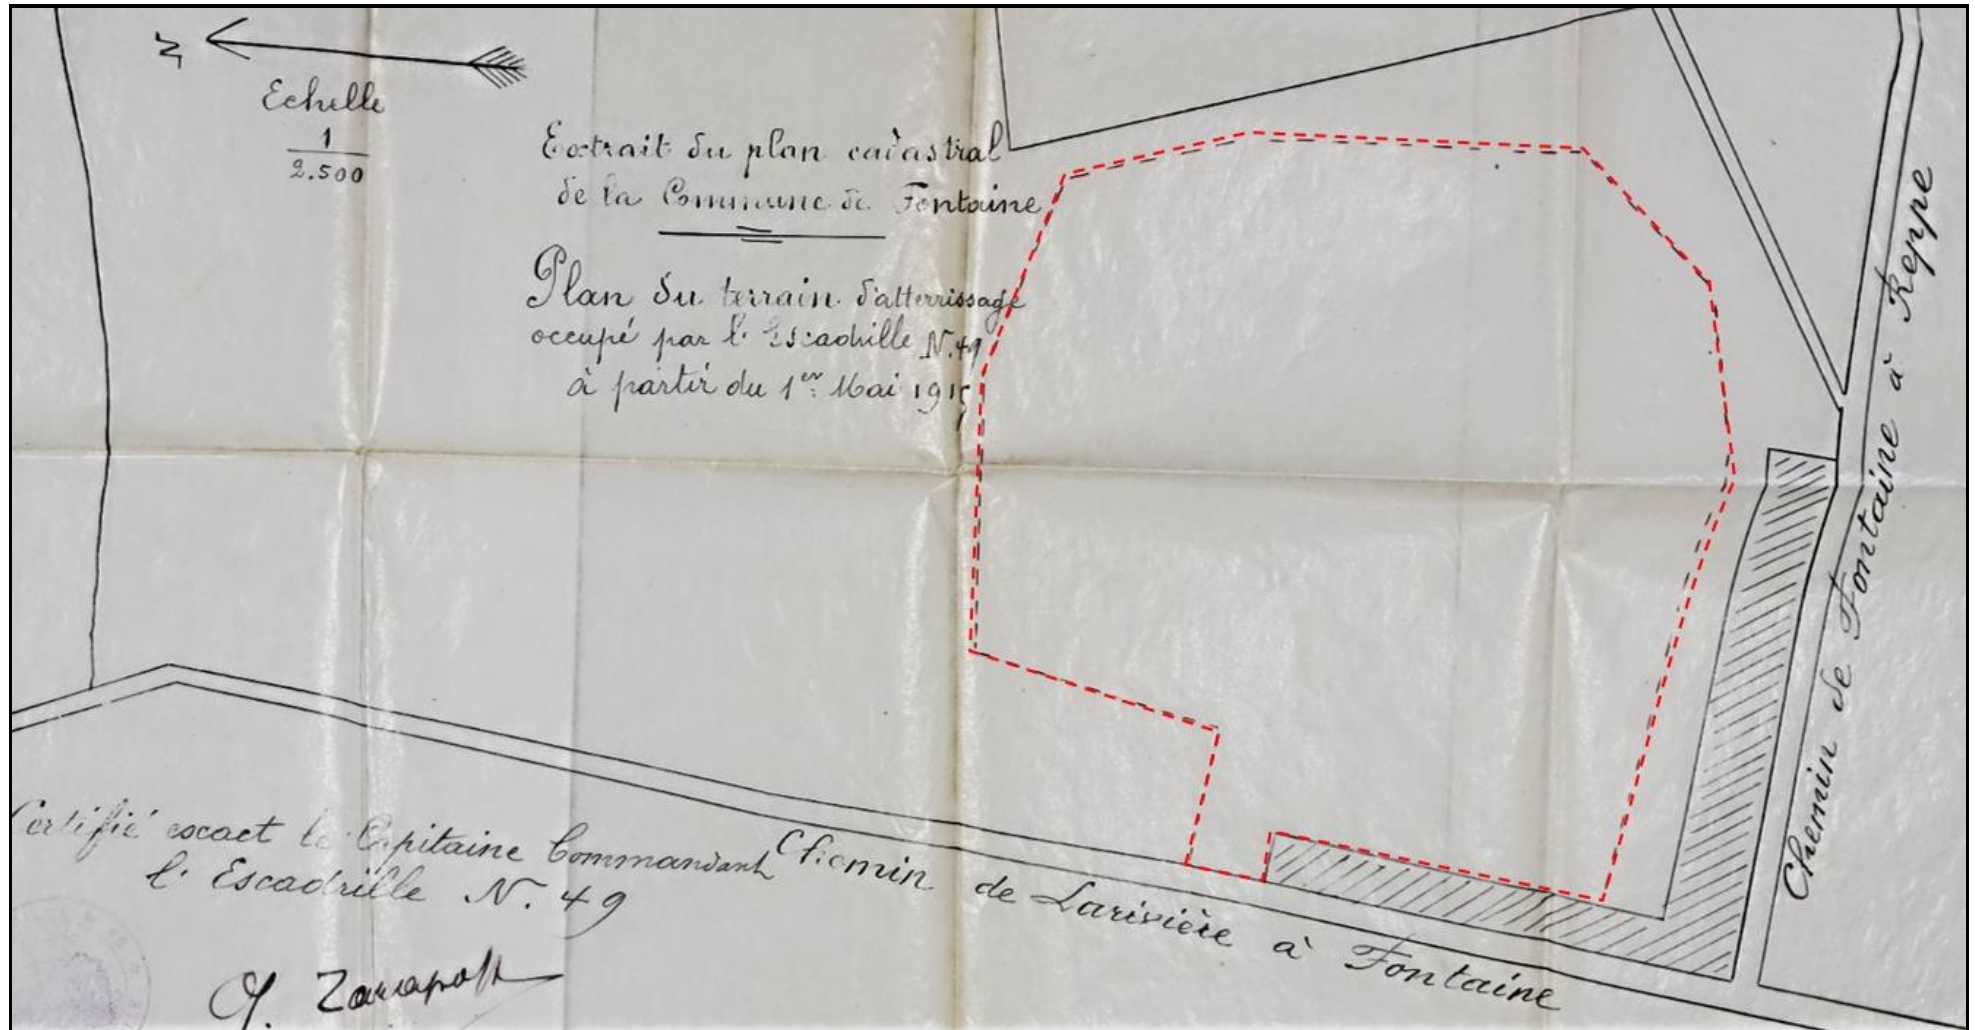 N
Echelle
1
2.500
Extrait du plan cadastral
de la Commune de Fontaine
Plan du terrain d'atterrissage
occupé par l'Escadrille N.49
à partir du 1er Mai 1915
Chemin de Fontaine à Reppe
Chemin de Larivière à Fontaine
Certifié exact le Capitaine Commandant
l'Escadrille N. 49